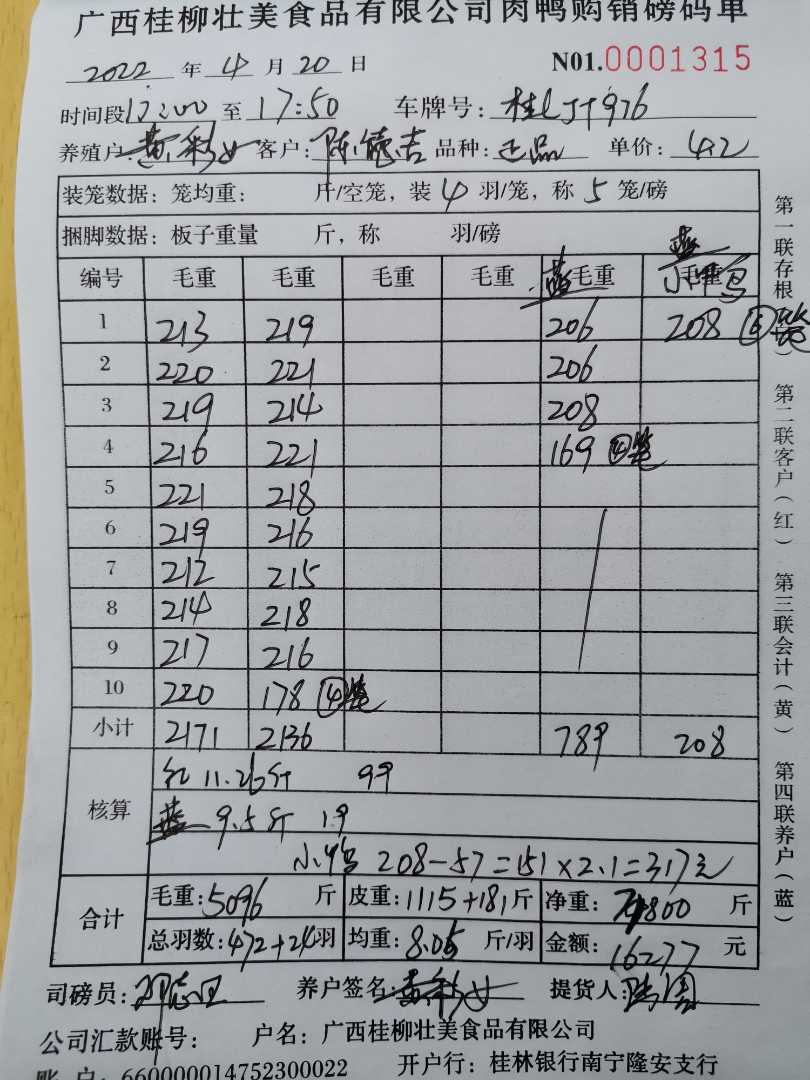 广西桂柳壮美食品有限公司肉鸭购销磅码单
2022 年 4 月 20 日 N01.0001315
时间段 至 17:50 车牌号:
养殖户: 黄彩女 客户: 品种: 正品 单价: 4.2
装笼数据: 笼均重: 斤/空笼, 装 4 羽/笼, 称 5 笼/磅
捆脚数据: 板子重量 斤, 称 羽/磅
蓝
编号 毛重 毛重 毛重 毛重 蓝 毛重 毛重
1 213 219 206 208 ⑤笼
2 220 221 206
3 219 214 208
4 216 221 169 ④笼
5 221 218
6 219 216
7 212 215
8 214 218
9 217 216
10 220 178 ④笼
小计 2171 2136 789 208
核算 红 11.26斤 9个
蓝 9.5斤 1个
208-57=151×2.1=317元
合计 毛重: 5096 斤 皮重: 1115+181 斤 净重: 3800 斤
总羽数: 472+24 羽 均重: 8.05 斤/羽 金额: 16277 元
司磅员: 养户签名: 黄彩女 提货人:
公司汇款账号: 户名: 广西桂柳壮美食品有限公司
账 户: 660000014752300022 开户行: 桂林银行南宁隆安支行
第一联存根 ） 第二联客户（红） 第三联会计（黄） 第四联养户（蓝）